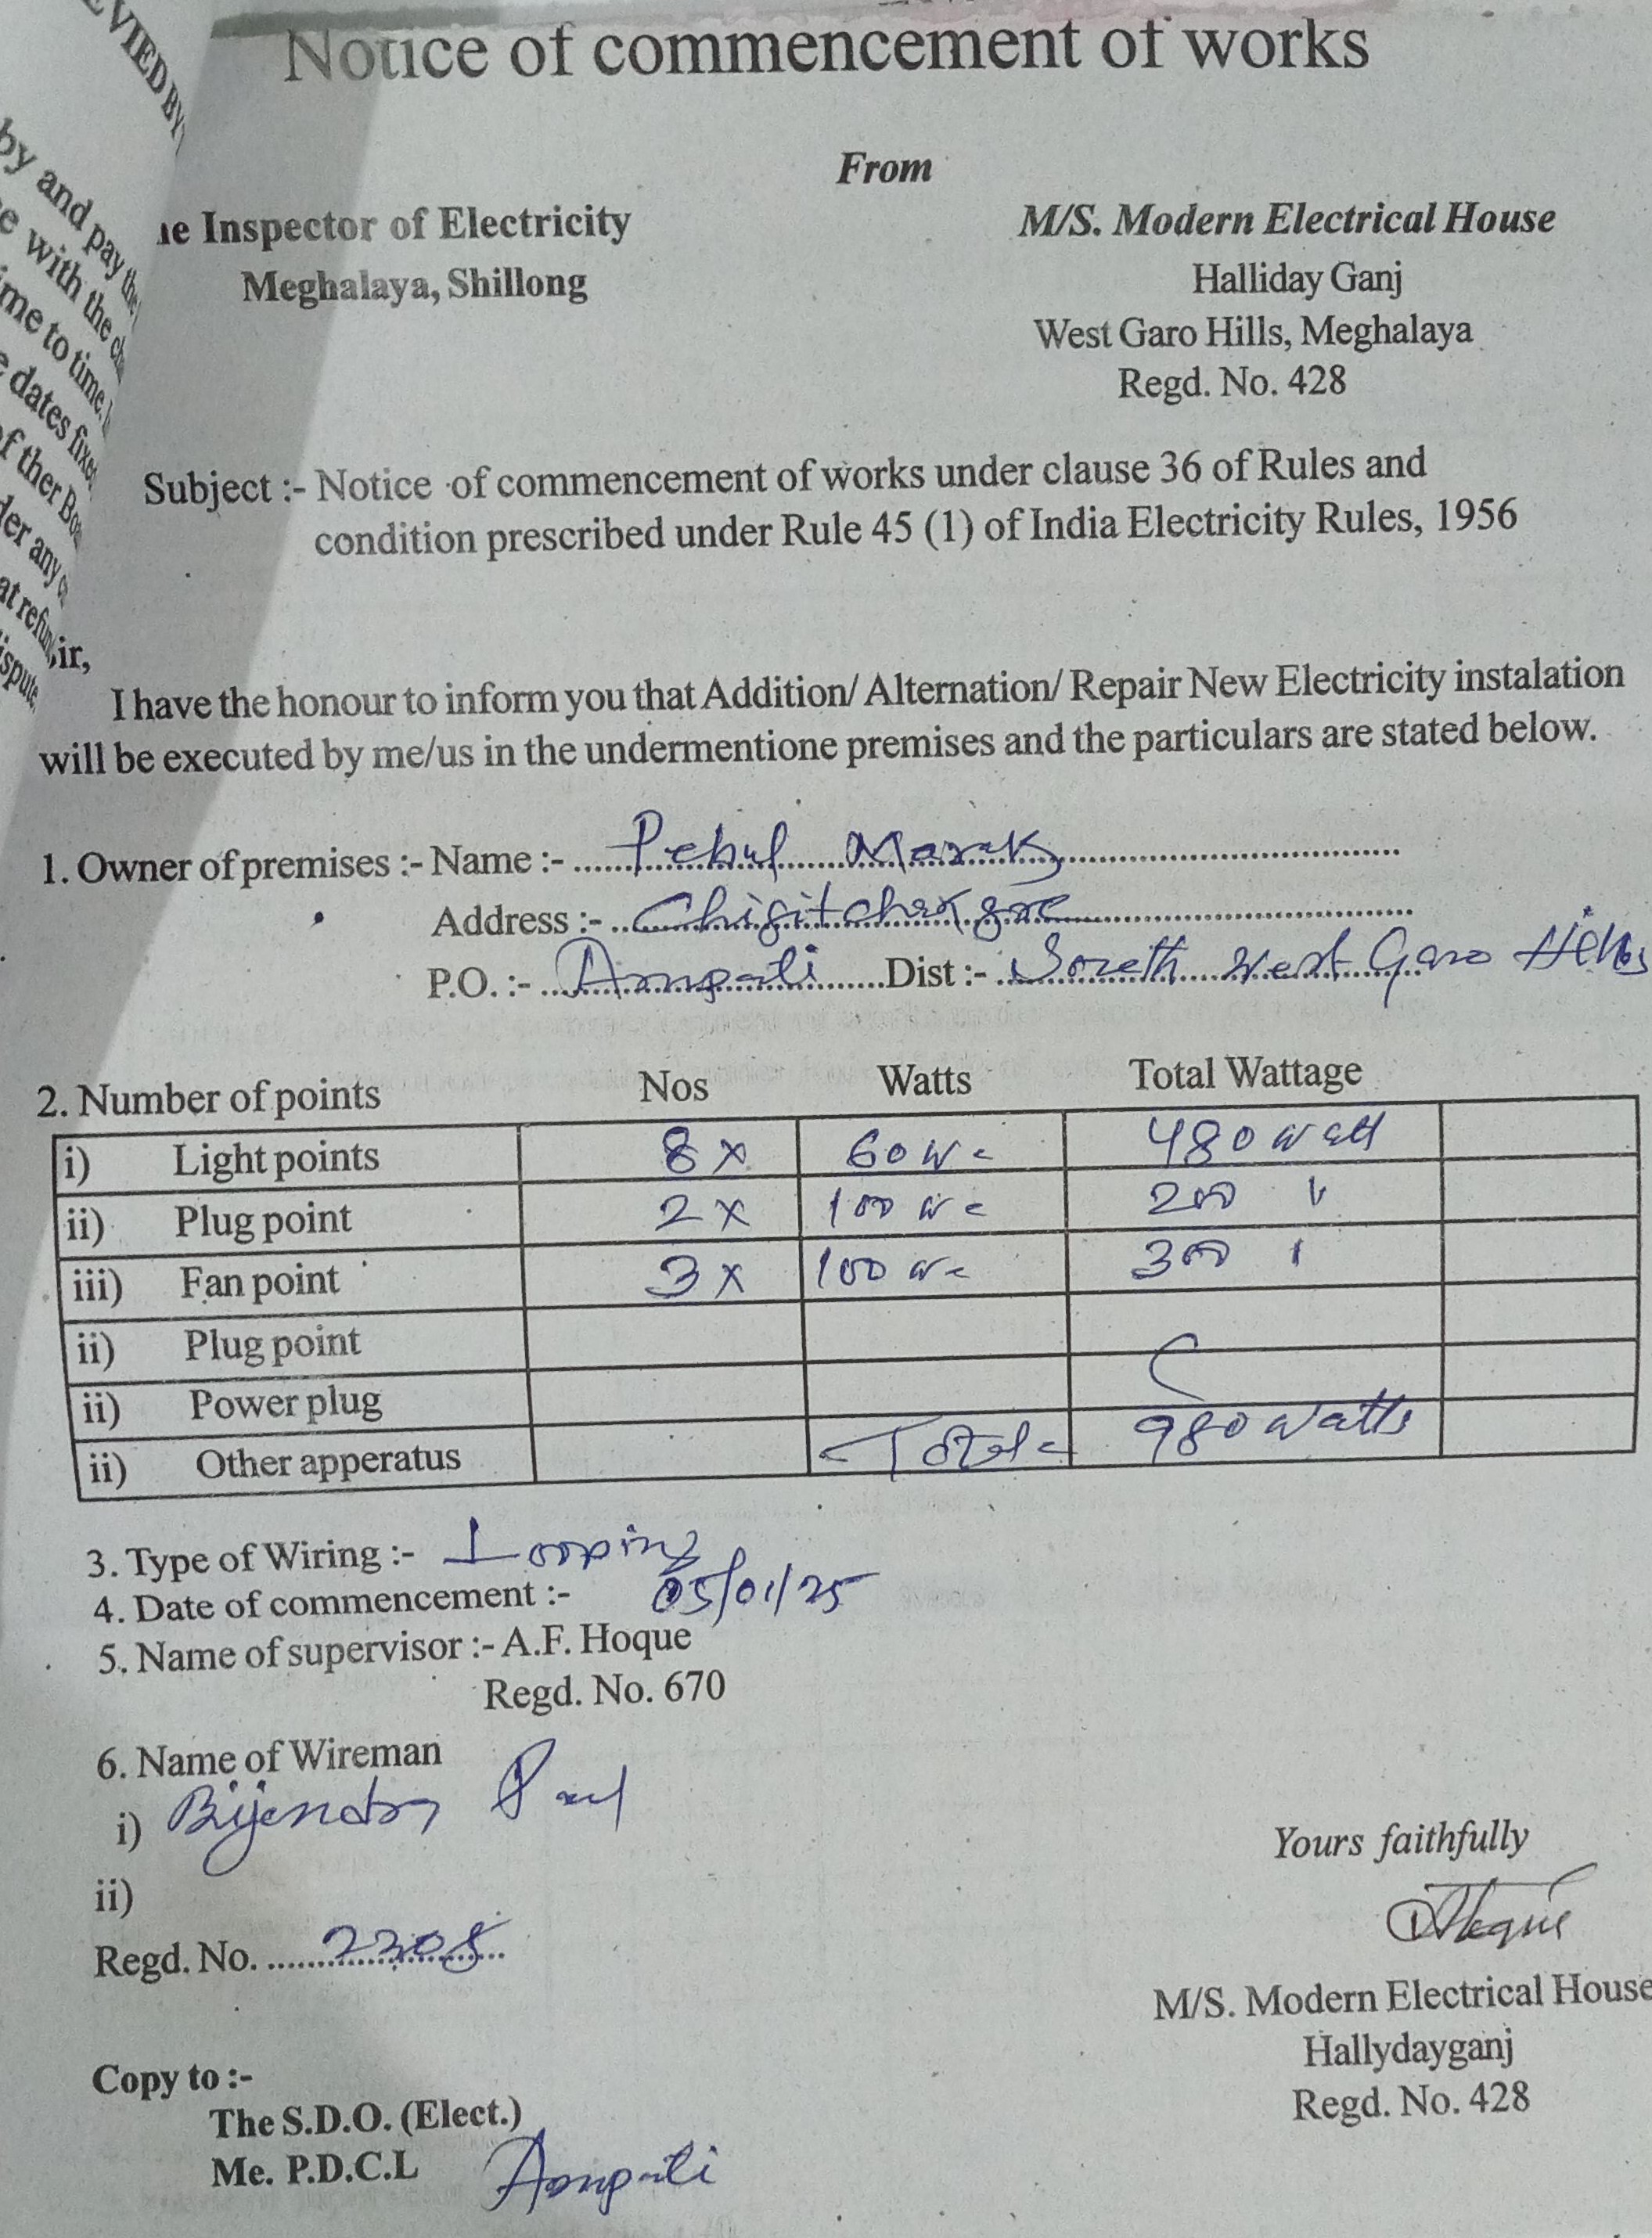 VIED BY
by and pay the
e with the
me to time.
e dates fixed
of ther Boa
der any
at refun
ispute
Notice of commencement of works
From
ne Inspector of Electricity
Meghalaya, Shillong
M/S. Modern Electrical House
Halliday Ganj
West Garo Hills, Meghalaya
Regd. No. 428
Subject :- Notice of commencement of works under clause 36 of Rules and
condition prescribed under Rule 45 (1) of India Electricity Rules, 1956
ir,
I have the honour to inform you that Addition/ Alternation/ Repair New Electricity instalation
will be executed by me/us in the undermentione premises and the particulars are stated below.
1. Owner of premises :- Name :- Pebul Marak
Address :- Chigitchakgre
P.O. :- Ampati Dist :- South West Garo Hills
2. Number of points Nos Watts Total Wattage
i) Light points 8 x 60 W = 480 watt
ii) Plug point 2 x 100 W = 200 "
iii) Fan point 3 x 100 W = 300 "
ii) Plug point
ii) Power plug
ii) Other apperatus Total = 980 watts
3. Type of Wiring :- Looping
4. Date of commencement :- 05/01/25
5. Name of supervisor :- A.F. Hoque
Regd. No. 670
6. Name of Wireman
i) Bijendra Paul
ii)
Regd. No. 2208
Yours faithfully
AHoque
M/S. Modern Electrical House
Hallydayganj
Regd. No. 428
Copy to :-
The S.D.O. (Elect.)
Me. P.D.C.L Ampati